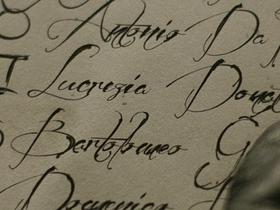 Antonio Da
Lucrezia Dona
Bartolomeo G
Domenico